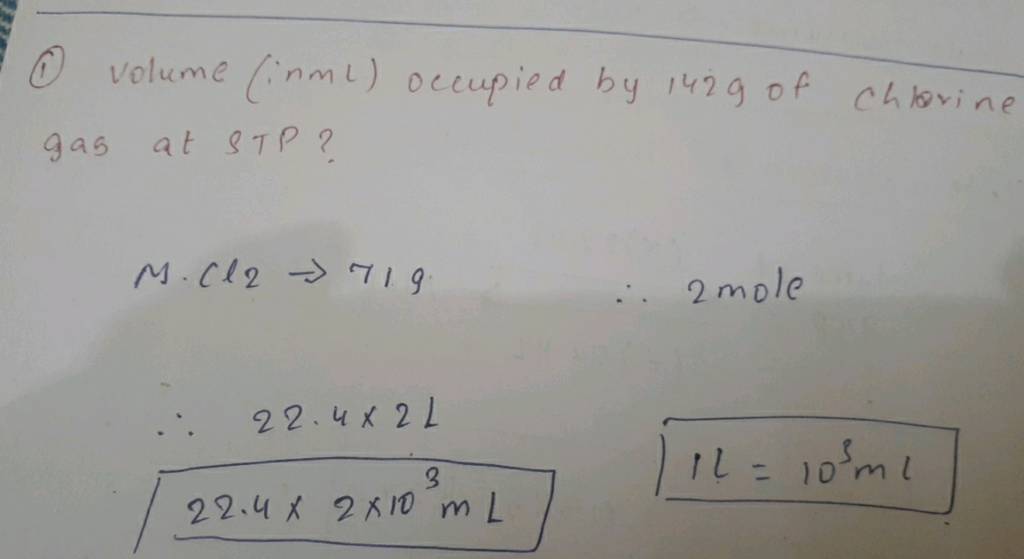 ① volume (in mL) occupied by 142g of chlorine
gas at STP?
M. Cl2 → 71 g.
∴ 2 mole
∴ 22.4 × 2 L
22.4 × 2×10³ mL
1L = 10³ mL